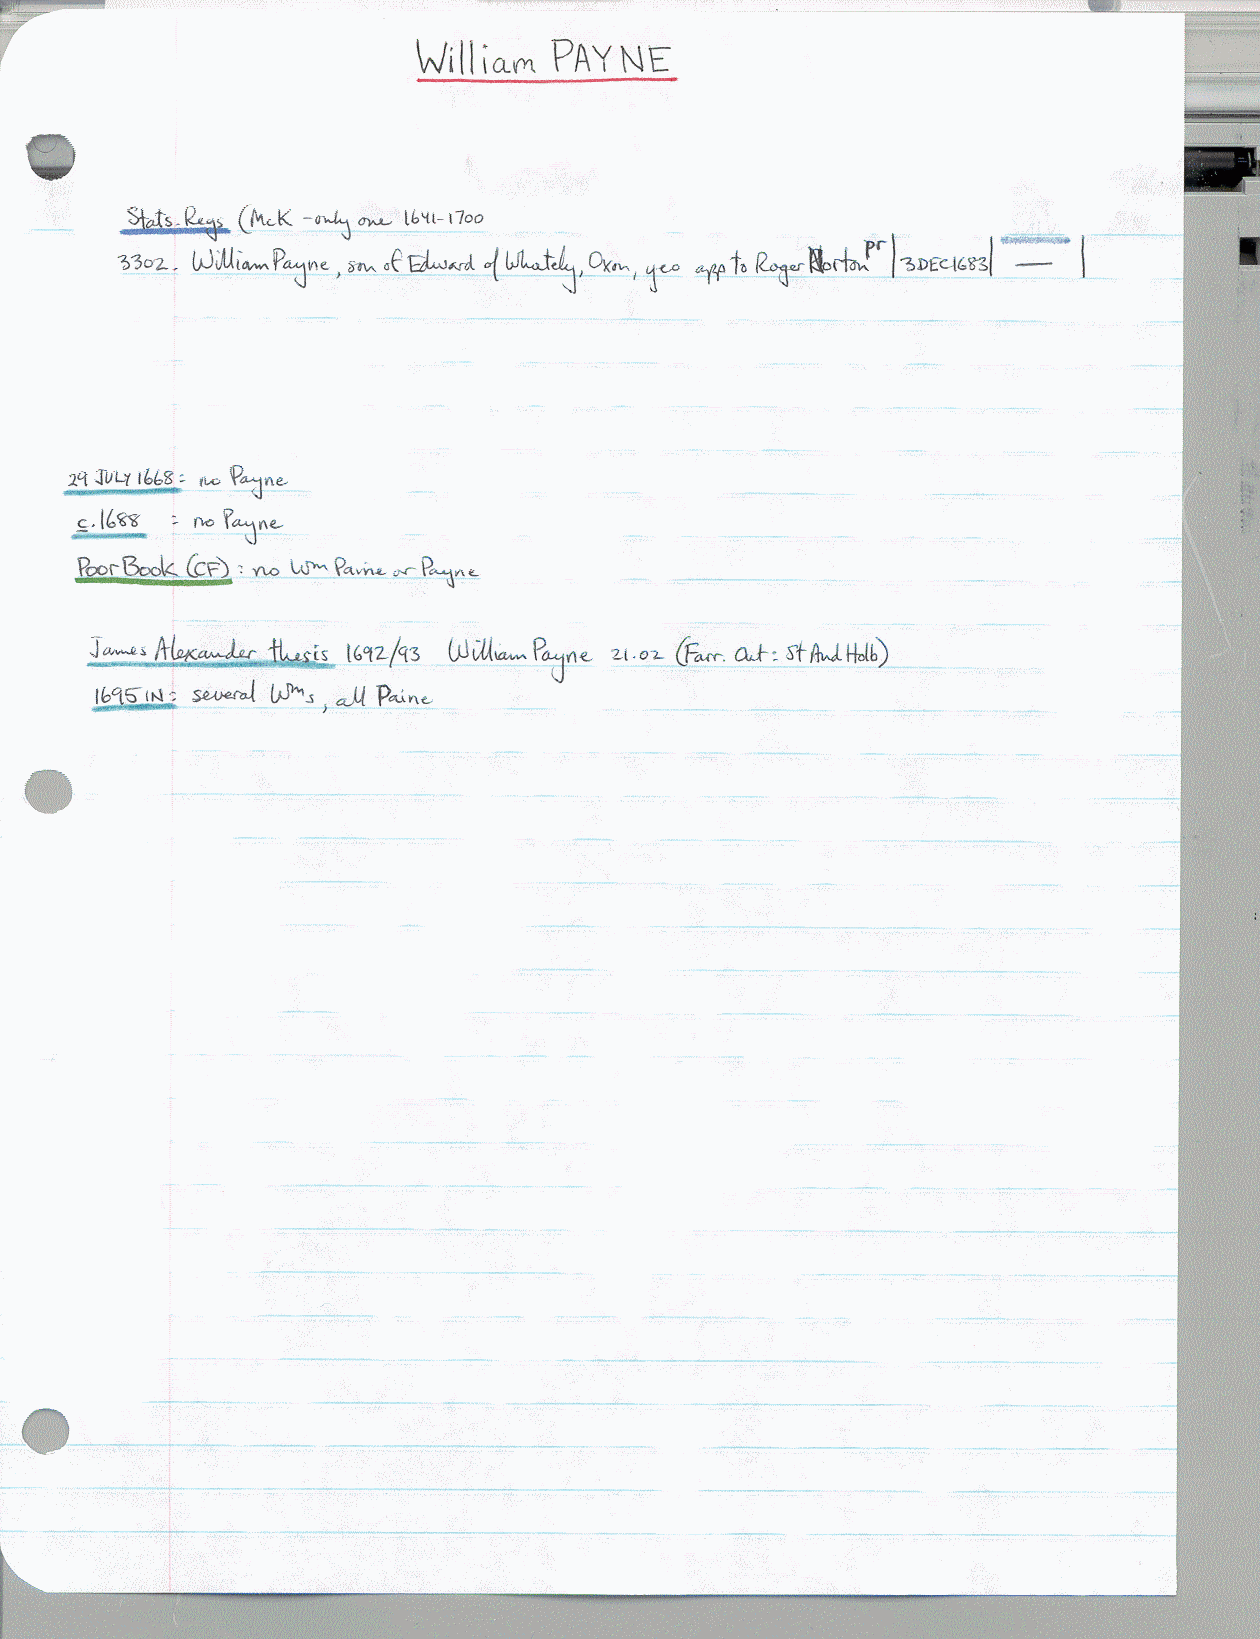 William PAYNE
Stats. Regs (McK - only one 1641-1700
3302. William Payne, son of Edward of Whately, Oxon, yeo app to Roger Norton pr | 3 DEC 1683 | — |
29 JULY 1668: no Payne
c. 1688 : no Payne
Poor Book (CF): no Wm Paine or Payne
James Alexander thesis 1692/93 William Payne 21.02 (Farr. Out: St And Holb)
1695 IN: several Wms, all Paine